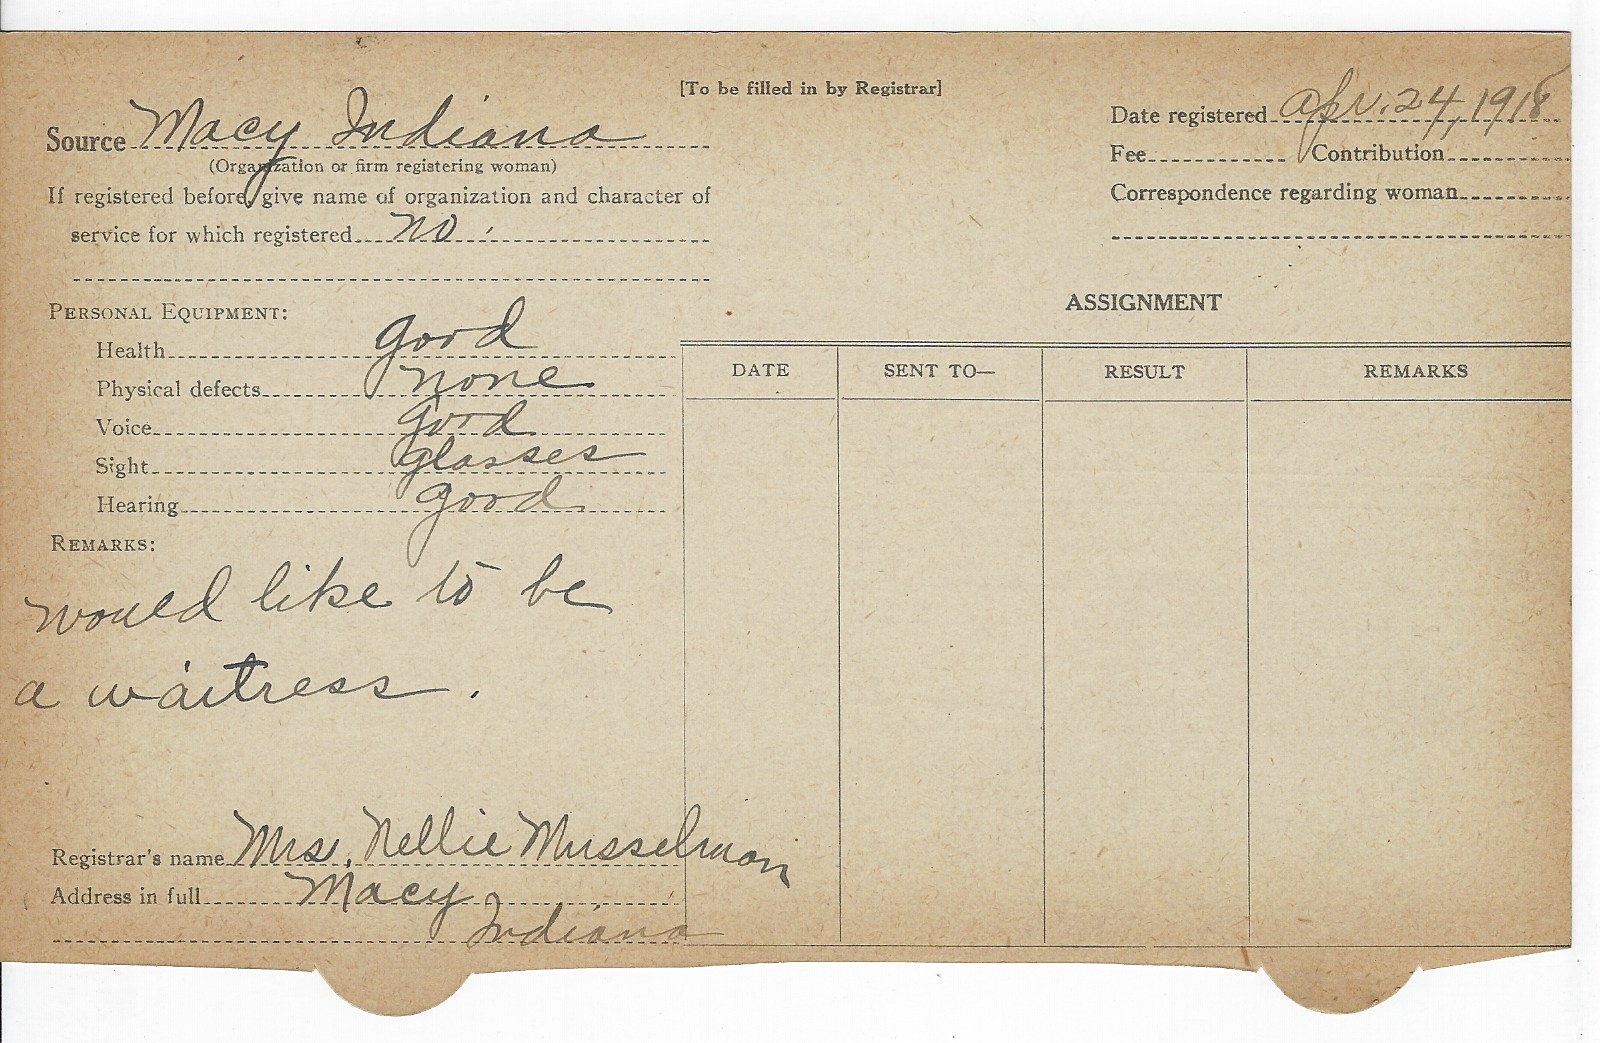 [To be filled in by Registrar]
Source Macy Indiana
(Organization or firm registering woman)
If registered before, give name of organization and character of
service for which registered no.
Date registered Apr. 24, 1918
Fee Contribution
Correspondence regarding woman
PERSONAL EQUIPMENT:
Health good
Physical defects none
Voice good
Sight glasses
Hearing good
REMARKS:
would like to be
a waitress.
ASSIGNMENT
DATE SENT TO— RESULT REMARKS
Registrar's name Mrs. Nellie Musselman
Address in full Macy
Indiana